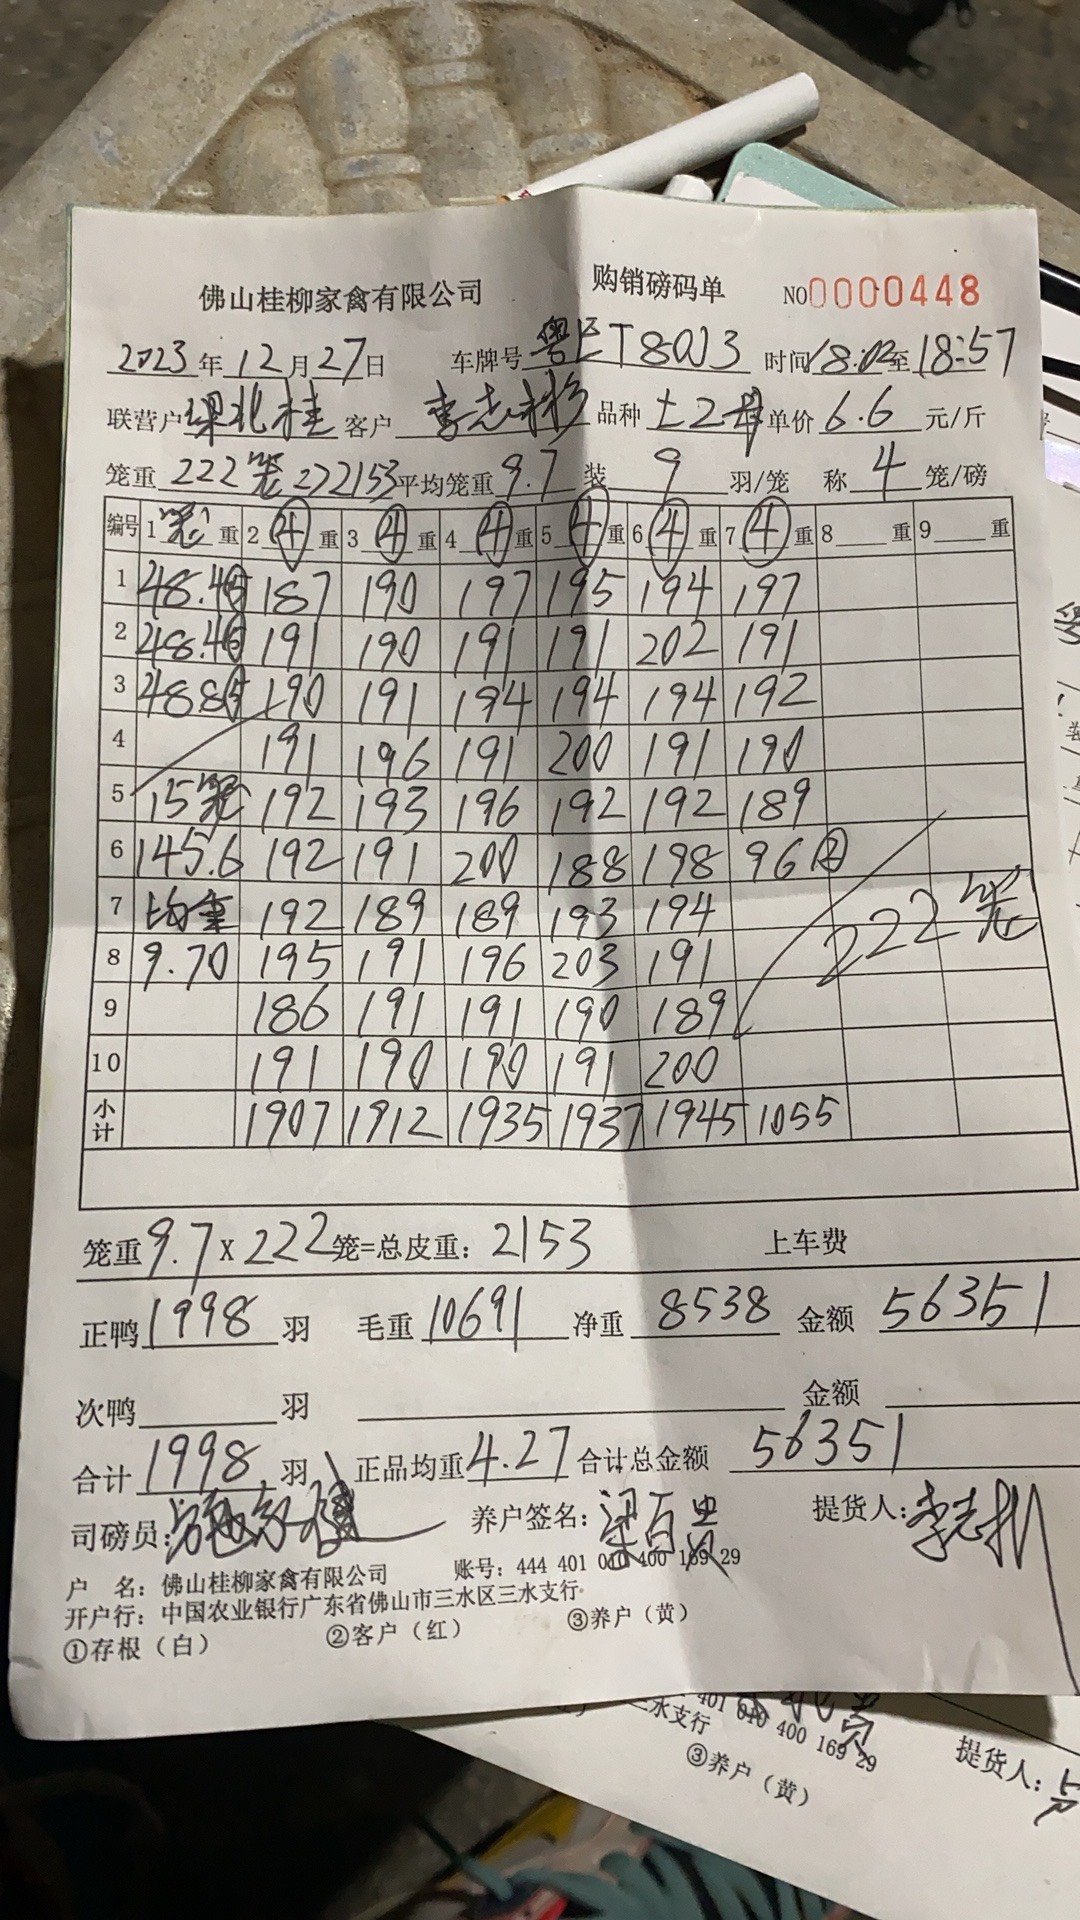 佛山桂柳家禽有限公司 购销磅码单 NO0000448
2023年12月27日 车牌号粤ET8033 时间18:02至18:57
联营户 北桂 客户 李志彬 品种 土2母 单价 6.6 元/斤
笼重 222笼 222153 平均笼重 9.7 装 9 羽/笼 称 4 笼/磅
编号 1笼重 2④重 3④重 4④重 5④重 6④重 7④重 8 重 9 重
1 48.4⑤ 187 190 197 195 194 197
2 48.4⑤ 191 190 191 191 202 191
3 48.8⑤ 190 191 194 194 194 192
4 191 196 191 200 191 190
5 15笼 192 193 196 192 192 189
6 145.6 192 191 200 188 198 96②
7 均重 192 189 189 193 194
8 9.70 195 191 196 203 191 222笼
9 186 191 191 190 189
10 191 190 190 191 200
小计 1907 1912 1935 1937 1945 1055
笼重9.7X222笼=总皮重：2153 上车费
正鸭1998羽 毛重10691 净重8538 金额56351
次鸭 羽 金额
合计1998羽 正品均重4.27 合计总金额 56351
司磅员： 养户签名：梁百贵 提货人：李志彬
户 名：佛山桂柳家禽有限公司 账号：444 401 010 400 169 29
开户行：中国农业银行广东省佛山市三水区三水支行
①存根（白） ②客户（红） ③养户（黄）
401 010 400 169 29
三水支行
③养户（黄） 提货人：